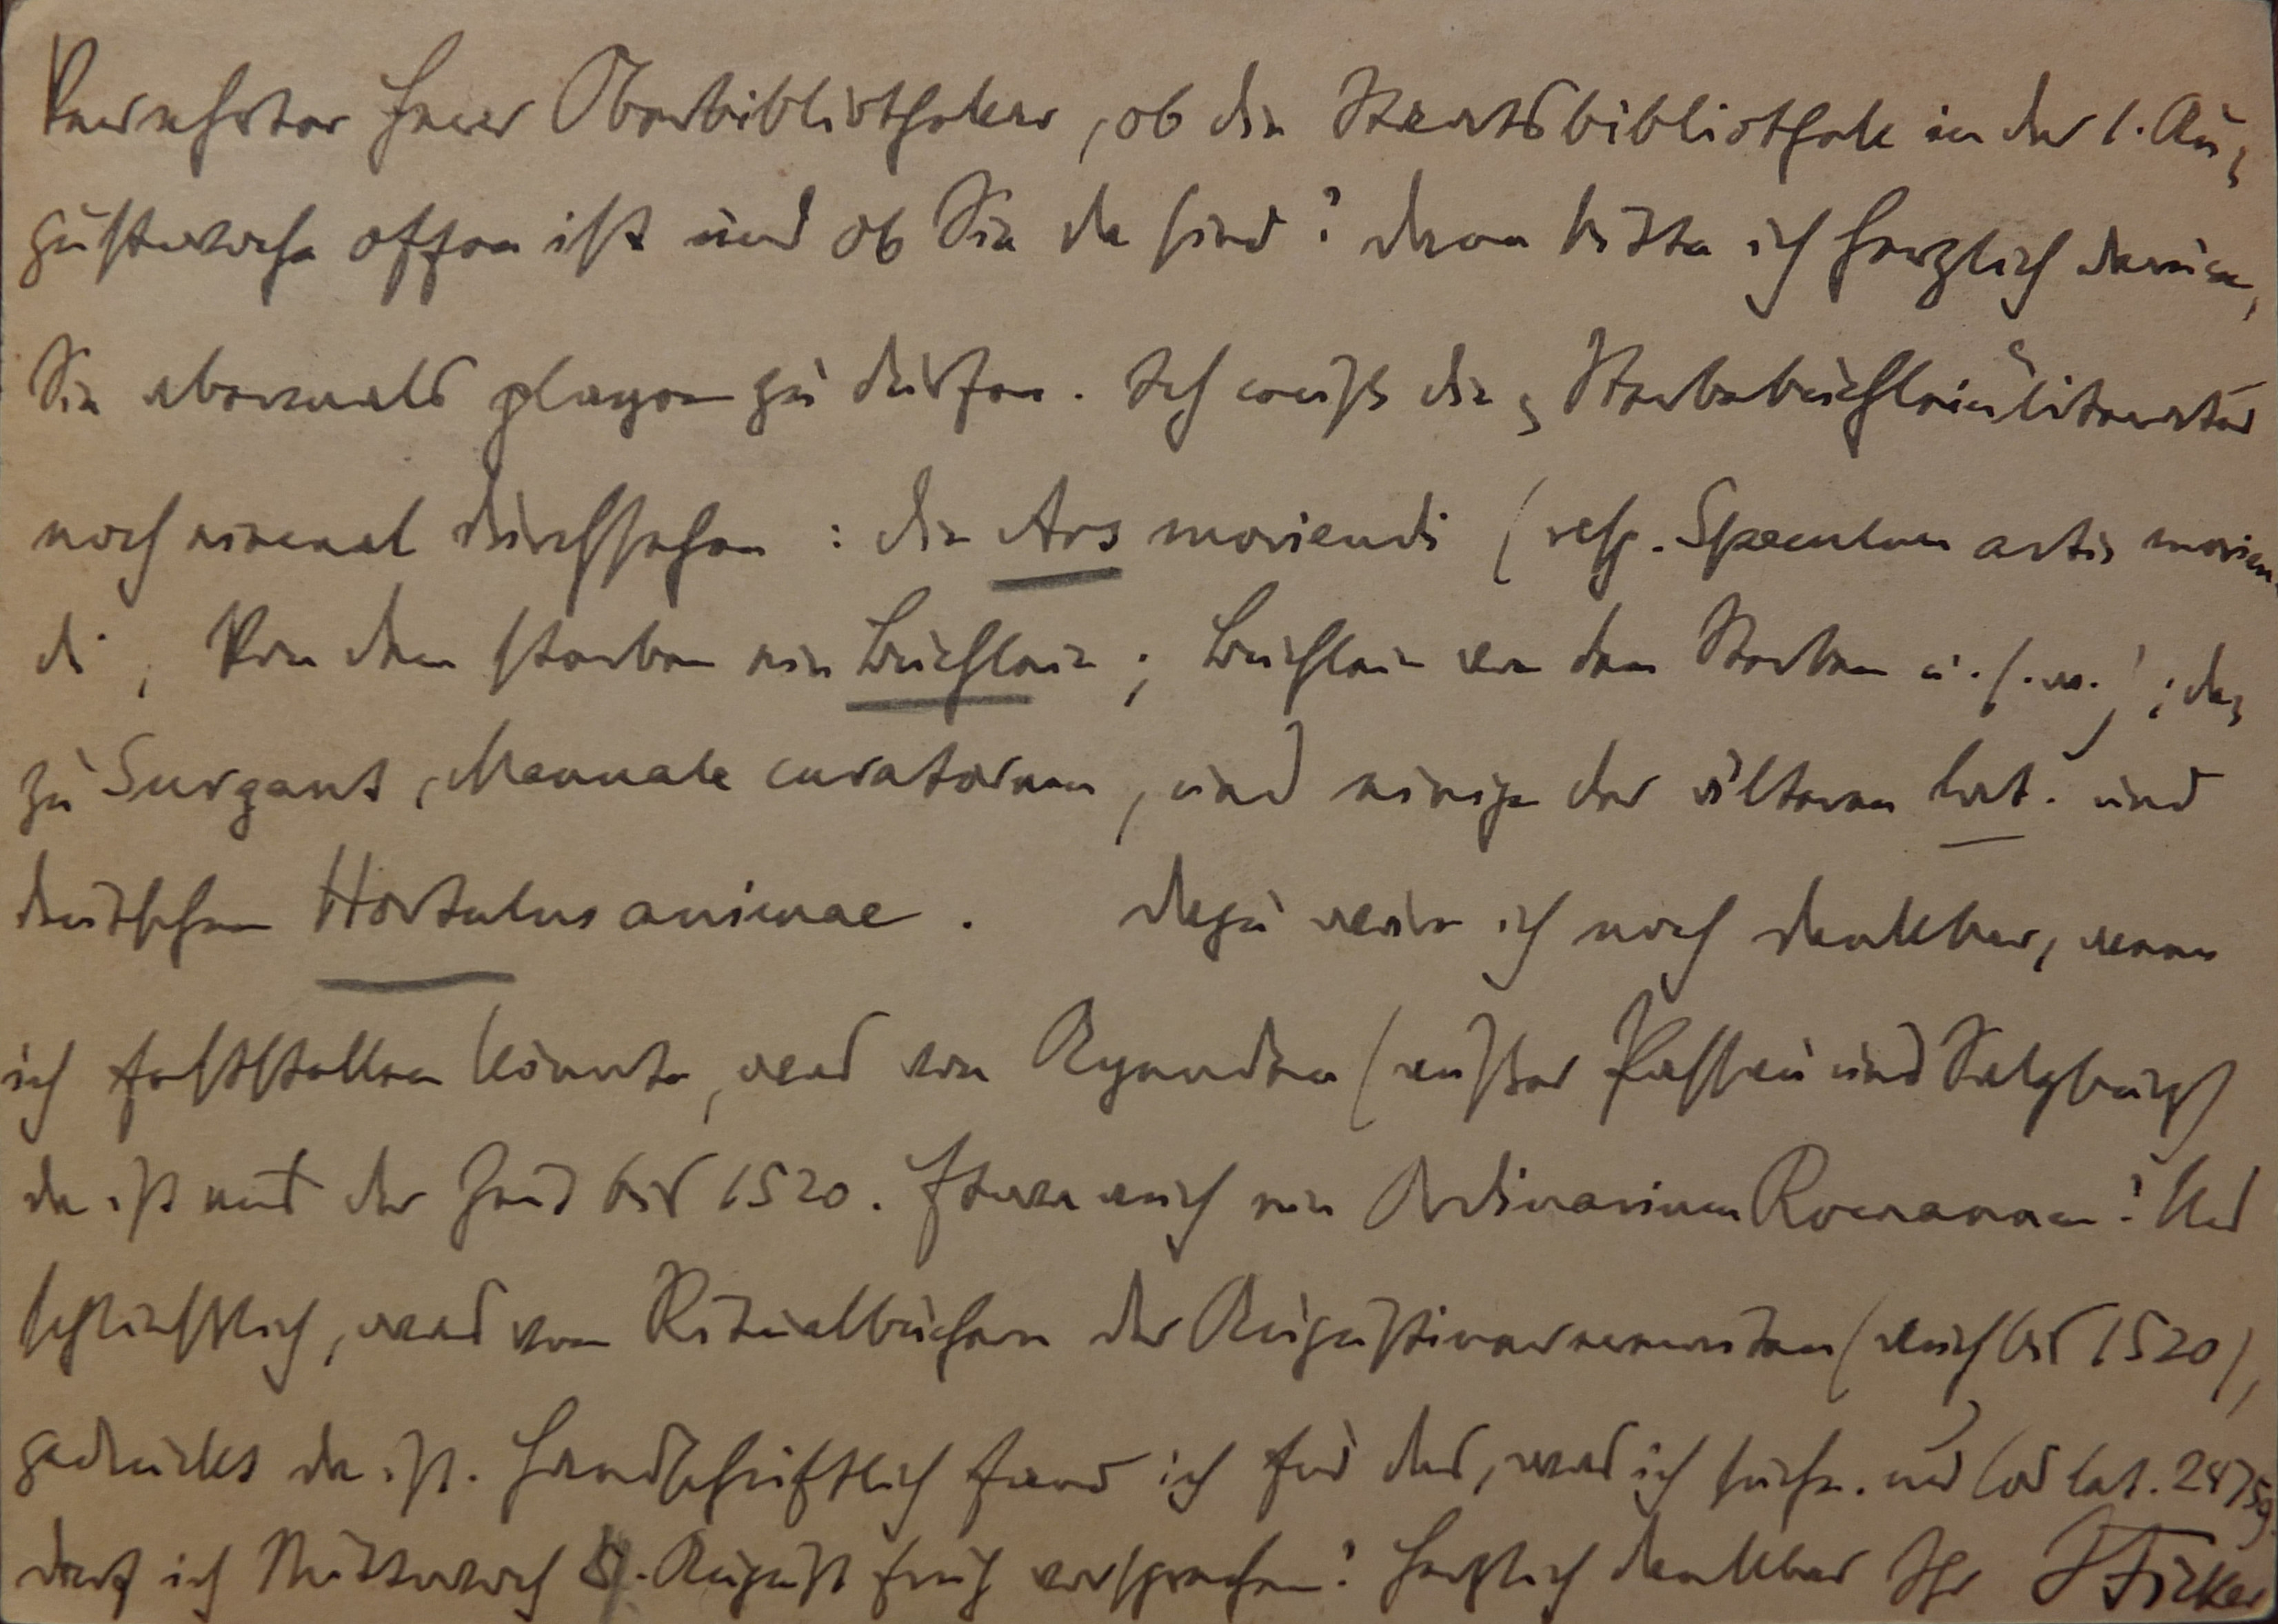 Verehrter Herr Oberbibliothekar, ob die Staatsbibliothek in der 1. Au-
gustwoche offen ist und ob Sie da sind? dann bitte ich herzlich darum,
Sie abermals plagen zu dürfen. Ich muß die Sterbebüchleinliteratur
noch einmal durchsehen: die Ars moriendi (resp. Speculum artis morien-
di, Von dem sterben ein büchlein; büchlein von dem Sterben u. s. w.); da-
zu Surgant, Manuale curatorum, und einige der älteren lat. und
deutschen Hortulus animae. dazu wäre ich noch dankbar, wenn
ich feststellen könnte, was von Agenden (außer Passau und Salzburg)
da ist aus der Zeit bis 1520. Etwa auch ein Ordinarium Romanum? Und
schließlich, was von Ritualbüchern der Augustinereremiten (auch bis 1520),
gedruckt da ist. Handschriftlich fand ich für das, was ich suche, nur Cod lat. 24759.
darf ich Mittwoch August früh vorsprechen? Herzlich dankbar Ihr J Ficker